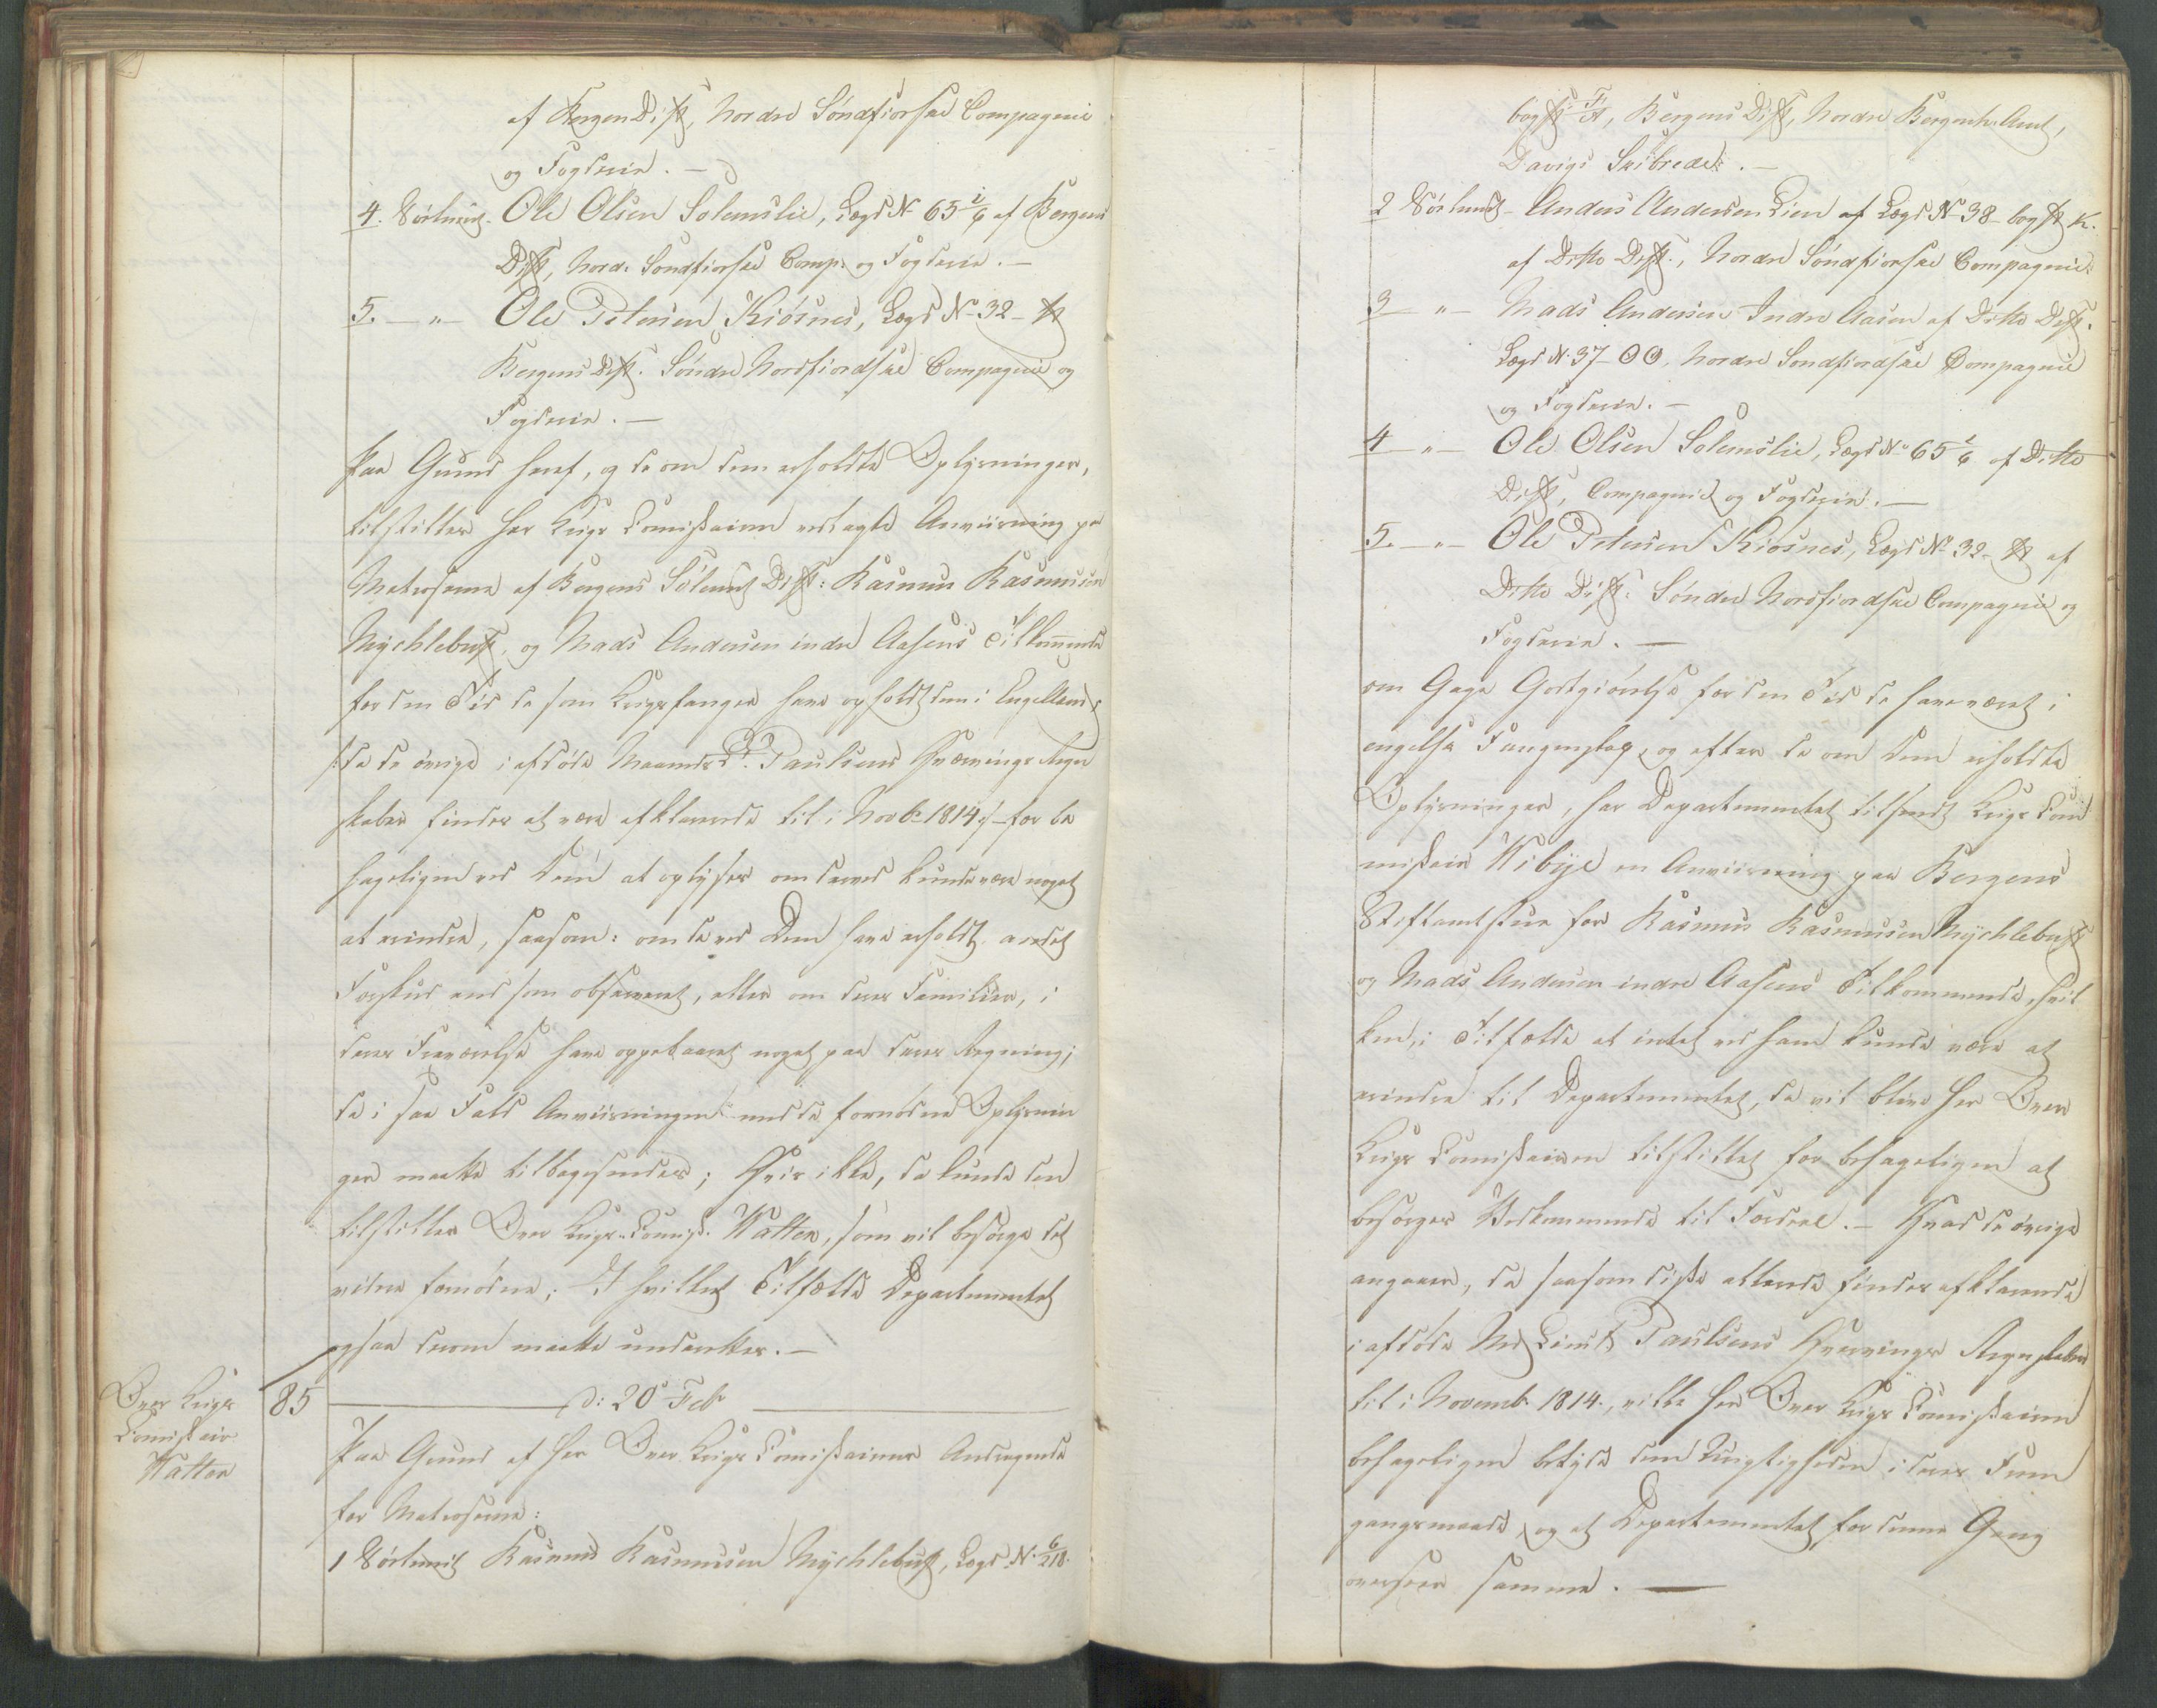 af Bergen Dist, Nordre Søndfiorske Compagnie
og Fogderie. —
4. Sørlimit. Ole Olsen Solemslie, Lægd No 65 2/6 af Bergens
Dist, Nord: Søndfiorske Comp: og Fogderie. —
5. — " — Ole Petersen Kiøsnes, Lægd No 32 —
Bergens Dist. Søndre Nordfiordske Compagnie og
Fogderie. —
Paa Grund heraf, og de om dem erholdte Oplysninger,
tilstilles Hr Krigs Comissairen vedlagte Anviisning for
Matroserne af Bergens Sølimit Dist: Rasmus Rasmusen
Mychlebust, og Mads Andersen indre Aasens Tilkommende
for den Tid de som Krigsfanger have opholdt dem i Engelland,
/: da de øvrige i afdøde Maaneds Lt. Paulsens Hvervings Regn
skaber findes at være afklarerede til i Novb 1814 :/ for be
hageligen ved Dem at oplyses om derved kunde være noget
at erindre, saasom: om de ved Dem have erholdt andet
Forskud end som observeret, eller om deres Familier, i
deres Fraværelse have oppebaaret noget paa deres Regning;
da i saa Fald Anviisningen med de fornødne Oplysnin
ger maatte tilbagesendes; Hvis ikke, da kunde den
tilstilles Over Krigs-Comiss. Walter, som vil besørge det
videre fornødne; I hvilket Tilfælde Departementet
ogsaa derom maatte underrettes. —
Over Krigs
Comissair
Walter
85 — d: 20 Feb —
Paa Grund af Hr Over Krigs Comissairens Andragende
for Matroserne:
1 Sørlimit Rasmus Rasmusen Mychlebust, Lægd No 6/218.
bogst: A, Bergens Dist, Nordre Bergenh. Amt,
Davigs Skibrede: —
2 Sørlimit — Anders Andersen Lien af Lægd No 38 — bogst K.
af Ditto Dist., Nordre Søndfiorske Compagnie:
3 — " — Mads Andersen Indre Aasen af Ditto Dist.
Lægd N. 37 — OO, Nordre Søndfiordske Compagnie
og Fogderie. —
4 — " — Ole Olsen Solemslie, Lægd No 65 2/6 af Ditto
Dist, Compagnie og Fogderie. —
5. — " — Ole Petersen Kiøsnes, Lægd No 32 — af
Ditto Dist: Søndre Nordfiordske Compagnie og
Fogderie. —
om Gage Godtgiørelse for den Tid de have været i
engelsk Fangenskab, og efter de om dem erholdte
Oplysninger, har Departementet tilsendt Krigs Com
missair Wibye en Anviisning paa Bergens
Stiftamtstue for Rasmus Rasmusen Mychlebust
og Mads Andersen indre Aasens Tilkommende, hvil
ken, i Tilfælde at intet ved ham kunde være at
erindre til Departementet, da vil blive Hr Over
Krigs Comissairen tilstillet for behageligen at
besørges Vedkommende til Fordeel. — Hvad de øvrige
angaaer, da saasom disse allerede findes afklarerede
i afdøde Md Lieut: Paulsens Hvervings Regnskaber
til i Novemb. 1814., ville Hr Over Krigs Comissairen
behageligen betyde dem Urigtigheden i deres Frem
gangsmaade, og at Departementet for denne Gang
overseer samme. —